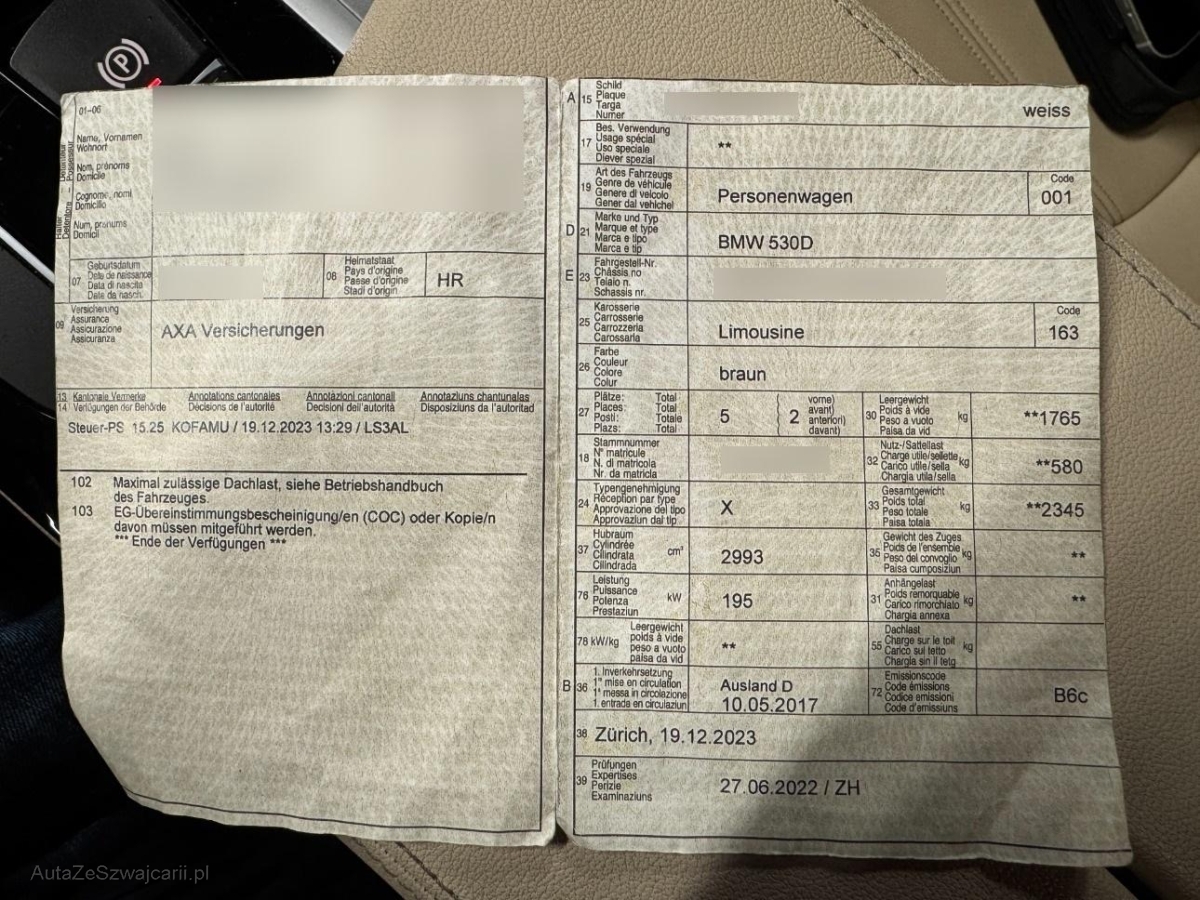 01-06
Name, Vornamen
Wohnort
Nom, prénoms
Domicile
Cognome, nomi
Domicilio
Num, prenums
Domicil
07
Geburtsdatum
Date de naissance
Data di nascita
Data da nasch.
08
Heimatstaat
Pays d'origine
Paese d'origine
Stadi d'origin
HR
09
Versicherung
Assurance
Assicurazione
Assicuranza
AXA Versicherungen
13 Kantonale Vermerke Annotations cantonales Annotazioni cantonali Annotaziuns chantunalas
14 Verfügungen der Behörde Décisions de l'autorité Decisioni dell'autorità Disposiziuns da l'autoritad
Steuer-PS 15.25 KOFAMU / 19.12.2023 13:29 / LS3AL
102 Maximal zulässige Dachlast, siehe Betriebshandbuch
des Fahrzeuges.
103 EG-Übereinstimmungsbescheinigung/en (COC) oder Kopie/n
davon müssen mitgeführt werden.
*** Ende der Verfügungen ***
A 15
Schild
Plaque
Targa
Numer
weiss
17
Bes. Verwendung
Usage spécial
Uso speciale
Diever spezial
**
19
Art des Fahrzeugs
Genre de véhicule
Genere di veicolo
Gener dal vehichel
Personenwagen
Code
001
D 21
Marke und Typ
Marque et type
Marca e tipo
Marca e tip
BMW 530D
E 23
Fahrgestell-Nr.
Châssis no
Telaio n.
Schassis nr.
25
Karosserie
Carrosserie
Carrozzeria
Carossaria
Limousine
Code
163
26
Farbe
Couleur
Colore
Colur
braun
27
Plätze: Total
Places: Total
Posti: Totale
Plazs: Total
5
2
vorne)
avant)
anteriori)
davant)
30
Leergewicht
Poids à vide
Peso a vuoto
Paisa da vid
kg
**1765
18
Stammnummer
N° matricule
N. di matricola
Nr. da matricla
32
Nutz-/Sattellast
Charge utile/sellette
Carico utile/sella
Chargia utila/sella
kg
**580
24
Typengenehmigung
Réception par type
Approvazione del tipo
Approvaziun dal tip
X
33
Gesamtgewicht
Poids total
Peso totale
Paisa totala
kg
**2345
37
Hubraum
Cylindrée
Cilindrata
Cilindrada
cm³
2993
35
Gewicht des Zuges
Poids de l'ensemble
Peso del convoglio
Paisa cumposiziun
kg
**
76
Leistung
Puissance
Potenza
Prestaziun
kW
195
31
Anhängelast
Poids remorquable
Carico rimorchiato
Chargia annexa
kg
**
78 kW/kg
Leergewicht
poids à vide
peso a vuoto
paisa da vid
**
55
Dachlast
Charge sur le toit
Carico sul tetto
Chargia sin il tetg
kg
B 36
1. Inverkehrsetzung
1re mise en circulation
1a messa in circolazione
1. entrada en circulaziun
Ausland D
10.05.2017
72
Emissionscode
Code émissions
Codice emissioni
Code d'emissiuns
B6c
38 Zürich, 19.12.2023
39
Prüfungen
Expertises
Perizie
Examinaziuns
27.06.2022 / ZH
AutaZeSzwajcarii.pl